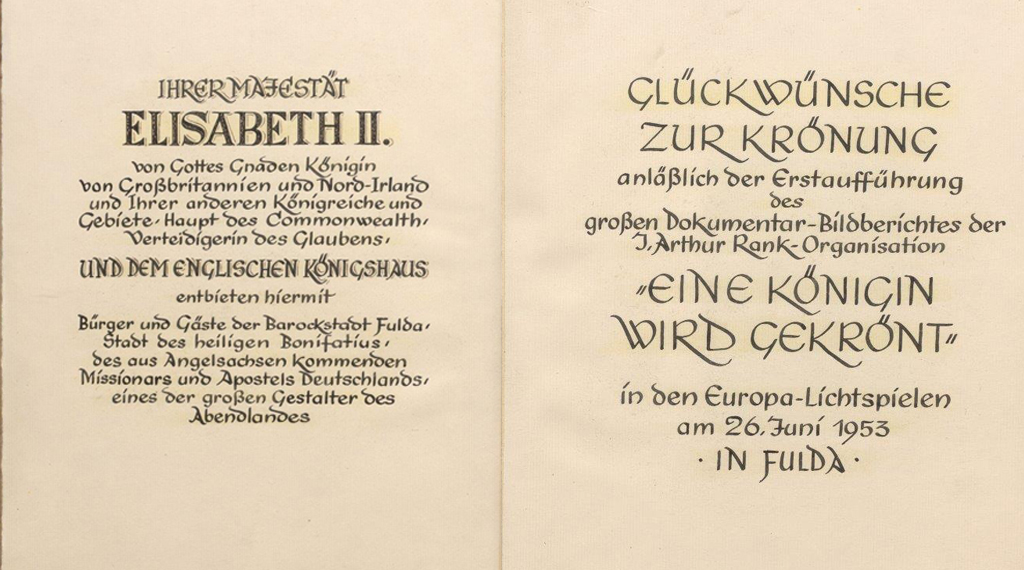 IHRER MAJESTÄT
ELISABETH II.
von Gottes Gnaden Königin
von Großbritannien und Nord-Irland
und Ihrer anderen Königreiche und
Gebiete, Haupt des Commonwealth,
Verteidigerin des Glaubens,
UND DEM ENGLISCHEN KÖNIGSHAUS
entbieten hiermit
Bürger und Gäste der Barockstadt Fulda,
Stadt des heiligen Bonifatius,
des aus Angelsachsen kommenden
Missionars und Apostels Deutschlands,
eines der großen Gestalter des
Abendlandes
GLÜCKWÜNSCHE
ZUR KRÖNUNG
anläßlich der Erstaufführung
des
großen Dokumentar-Bildberichtes der
J. Arthur Rank-Organisation
"EINE KÖNIGIN
WIRD GEKRÖNT"
in den Europa-Lichtspielen
am 26. Juni 1953
· IN FULDA ·